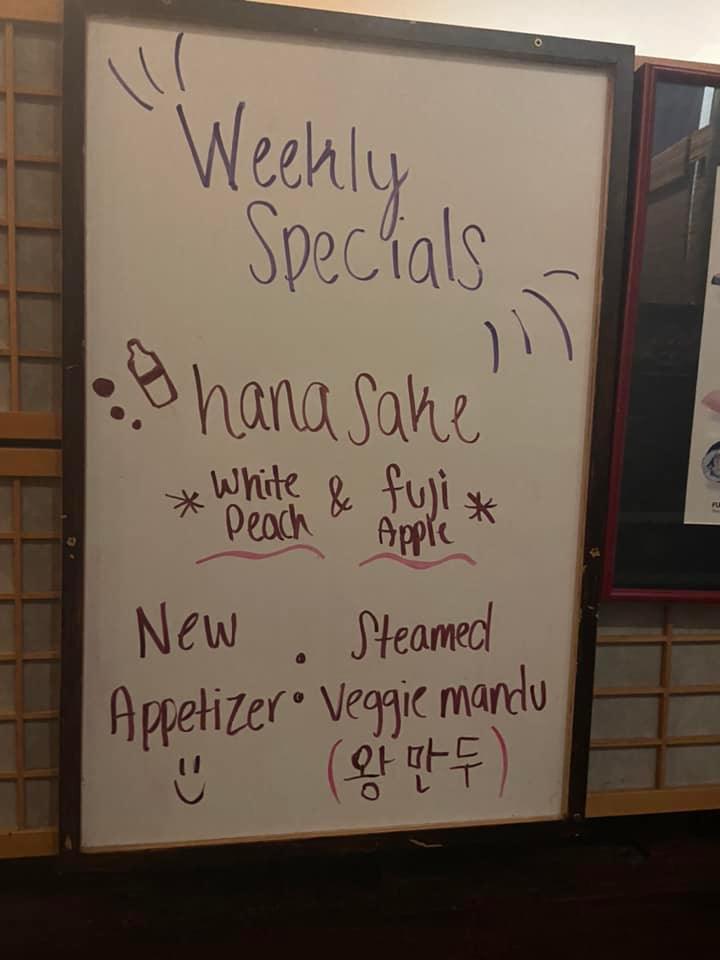 Weekly
Specials
hana Sake
* White Peach & fuji Apple *
New Appetizer : Steamed Veggie mandu
(왕만두)